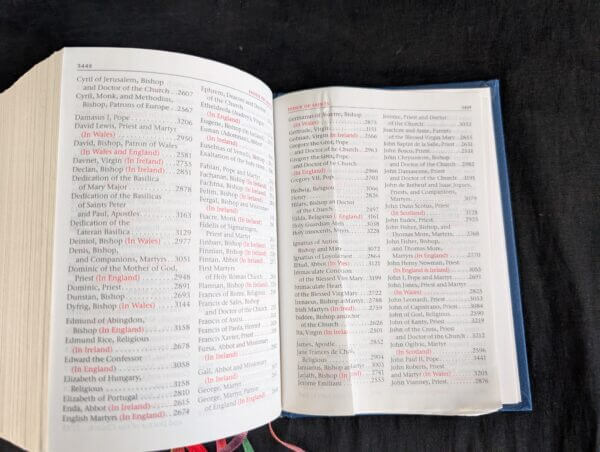 3448
Cyril of Jerusalem, Bishop
and Doctor of the Church . . 2607
Cyril, Monk, and Methodius,
Bishop, Patrons of Europe . 2567
Damasus I, Pope . . . 3206
David Lewis, Priest and Martyr
(In Wales) . . . 2950
David, Bishop, Patron of Wales
(In Wales and England) . . . 2581
Davnet, Virgin (In Ireland) . . . 2733
Declan, Bishop (In Ireland) . . . 2851
Dedication of the Basilica
of Mary Major . . . 2878
Dedication of the Basilicas
of Saints Peter
and Paul, Apostles . . . 3163
Dedication of the
Lateran Basilica . . . 3129
Deiniol, Bishop (In Wales) . . 2977
Denis, Bishop,
and Companions, Martyrs . . 3051
Dominic of the Mother of God,
Priest (In England) . . . 2948
Dominic, Priest . . . 2891
Dunstan, Bishop . . . 2693
Dyfrig, Bishop (In Wales) . . . 3144
Edmund of Abingdon,
Bishop (In England) . . . 3158
Edmund Rice, Religious
(In Ireland) . . . 2678
Edward the Confessor
(In England) . . . 3058
Elizabeth of Hungary,
Religious . . . 3158
Elizabeth of Portugal . . . 2810
Enda, Abbot (In Ireland) . . . 2615
English Martyrs (In England) . . 2674
Ephrem, Deacon and Doctor
of the Church
Etheldreda (Audrey), Virgin
(In England)
Eugene, Bishop (In Ireland)
Eunan (Adomnán), Abbot
(In Ireland)
Eusebius of Vercelli, Bishop
Exaltation of the Holy Cross
Fabian, Pope and Martyr
Fachanan, Bishop (In Ireland)
Fachtna, Bishop (In Ireland)
Fechin, Abbot (In Ireland)
Fergal, Bishop and Missionary
(In Ireland)
Fiacre, Monk (In Ireland)
Fidelis of Sigmaringen,
Priest and Martyr
Finbarr, Bishop (In Ireland)
Finnian, Bishop (In Ireland)
Fintan, Abbot (In Ireland)
First Martyrs
of Holy Roman Church
Flannan, Bishop (In Ireland)
Frances of Rome, Religious
Francis de Sales, Bishop
and Doctor of the Church
Francis of Assisi
Francis of Paola, Hermit
Francis Xavier, Priest
Fursa, Abbot and Missionary
(In Ireland)
Gall, Abbot and Missionary
(In Ireland)
George, Martyr
George, Martyr, Patron
of England (In England)
INDEX OF SAINTS
3449
Germanus of Auxerre, Bishop
(In Wales) . . . 2875
Gertrude, Virgin . . . 3151
Gobnait, Virgin (In Ireland) . . 2566
Gregory the Great, Pope
and Doctor of the Church . . 2963
Gregory the Great, Pope
(In England) . . . 2966
Gregory VII, Pope . . . 2702
Hedwig, Religious . . . 3066
Henry . . . 2826
Hilary, Bishop and Doctor
of the Church . . . 2497
Hilda, Religious (In England) 3161
Holy Guardian Angels . . . 3038
Holy Innocents, Martyrs . . . 3228
Ignatius of Antioch,
Bishop and Martyr . . . 3072
Ignatius of Loyola . . . 2864
Illtud, Abbot (In Wales) . . . 3121
Immaculate Conception
of the Blessed Virgin Mary . . 3199
Immaculate Heart
of the Blessed Virgin Mary . . . 2722
Irenaeus, Bishop and Martyr . . 2788
Irish Martyrs (In Ireland) . . . 2759
Isidore, Bishop and Doctor
of the Church . . . 2626
Ita, Virgin (In Ireland) . . . 2501
James, Apostle . . . 2852
Jane Frances de Chantal,
Religious . . . 2904
Januarius, Bishop and Martyr . . . 3003
Jarlath, Bishop (In Ireland) . . . 2741
Jerome Emiliani . . . 2553
Jerome, Priest and Doctor
of the Church . . . 3032
Joachim and Anne, Parents
of the Blessed Virgin Mary . . 2855
John Baptist de la Salle, Priest . 2631
John Bosco, Priest . . . 2541
John Chrysostom, Bishop
and Doctor of the Church . . 2982
John Damascene, Priest
and Doctor of the Church . . 3191
John de Brébeuf and Isaac Jogues,
Priests, and Companions,
Martyrs . . . 3079
John Duns Scotus, Priest
(In Scotland) . . . 3128
John Eudes, Priest . . . 2925
John Fisher, Bishop, and
Thomas More, Martyrs . . . 2768
John Fisher, Bishop,
and Thomas More,
Martyrs (In England) . . . 2770
John Henry Newman, Priest
(In England and Ireland) . . . 3055
John I, Pope and Martyr . . . 2691
John Jones, Priest and Martyr
(In Wales) . . . 2825
John Leonardi, Priest . . . 3053
John of Capistrano, Priest . . . 3084
John of God, Religious . . . 2590
John of Kanty, Priest . . . 3219
John of the Cross, Priest
and Doctor of the Church . . . 3212
John Ogilvie, Martyr
(In Scotland) . . . 2596
John Paul II, Pope . . . 3441
John Roberts, Priest
and Martyr (In Wales) . . . 2853
John Vianney, Priest . . . 2876